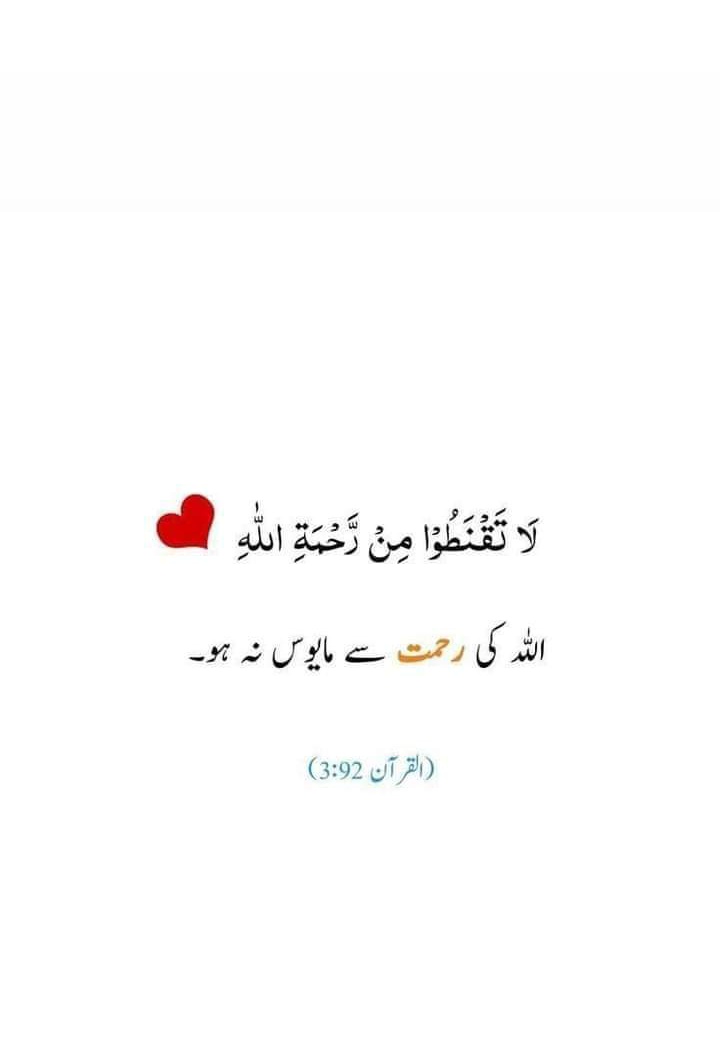 لَا تَقْنَطُوْا مِنْ رَّحْمَةِ اللّٰهِ
اللہ کی رحمت سے مایوس نہ ہو۔
(القرآن 3:92)